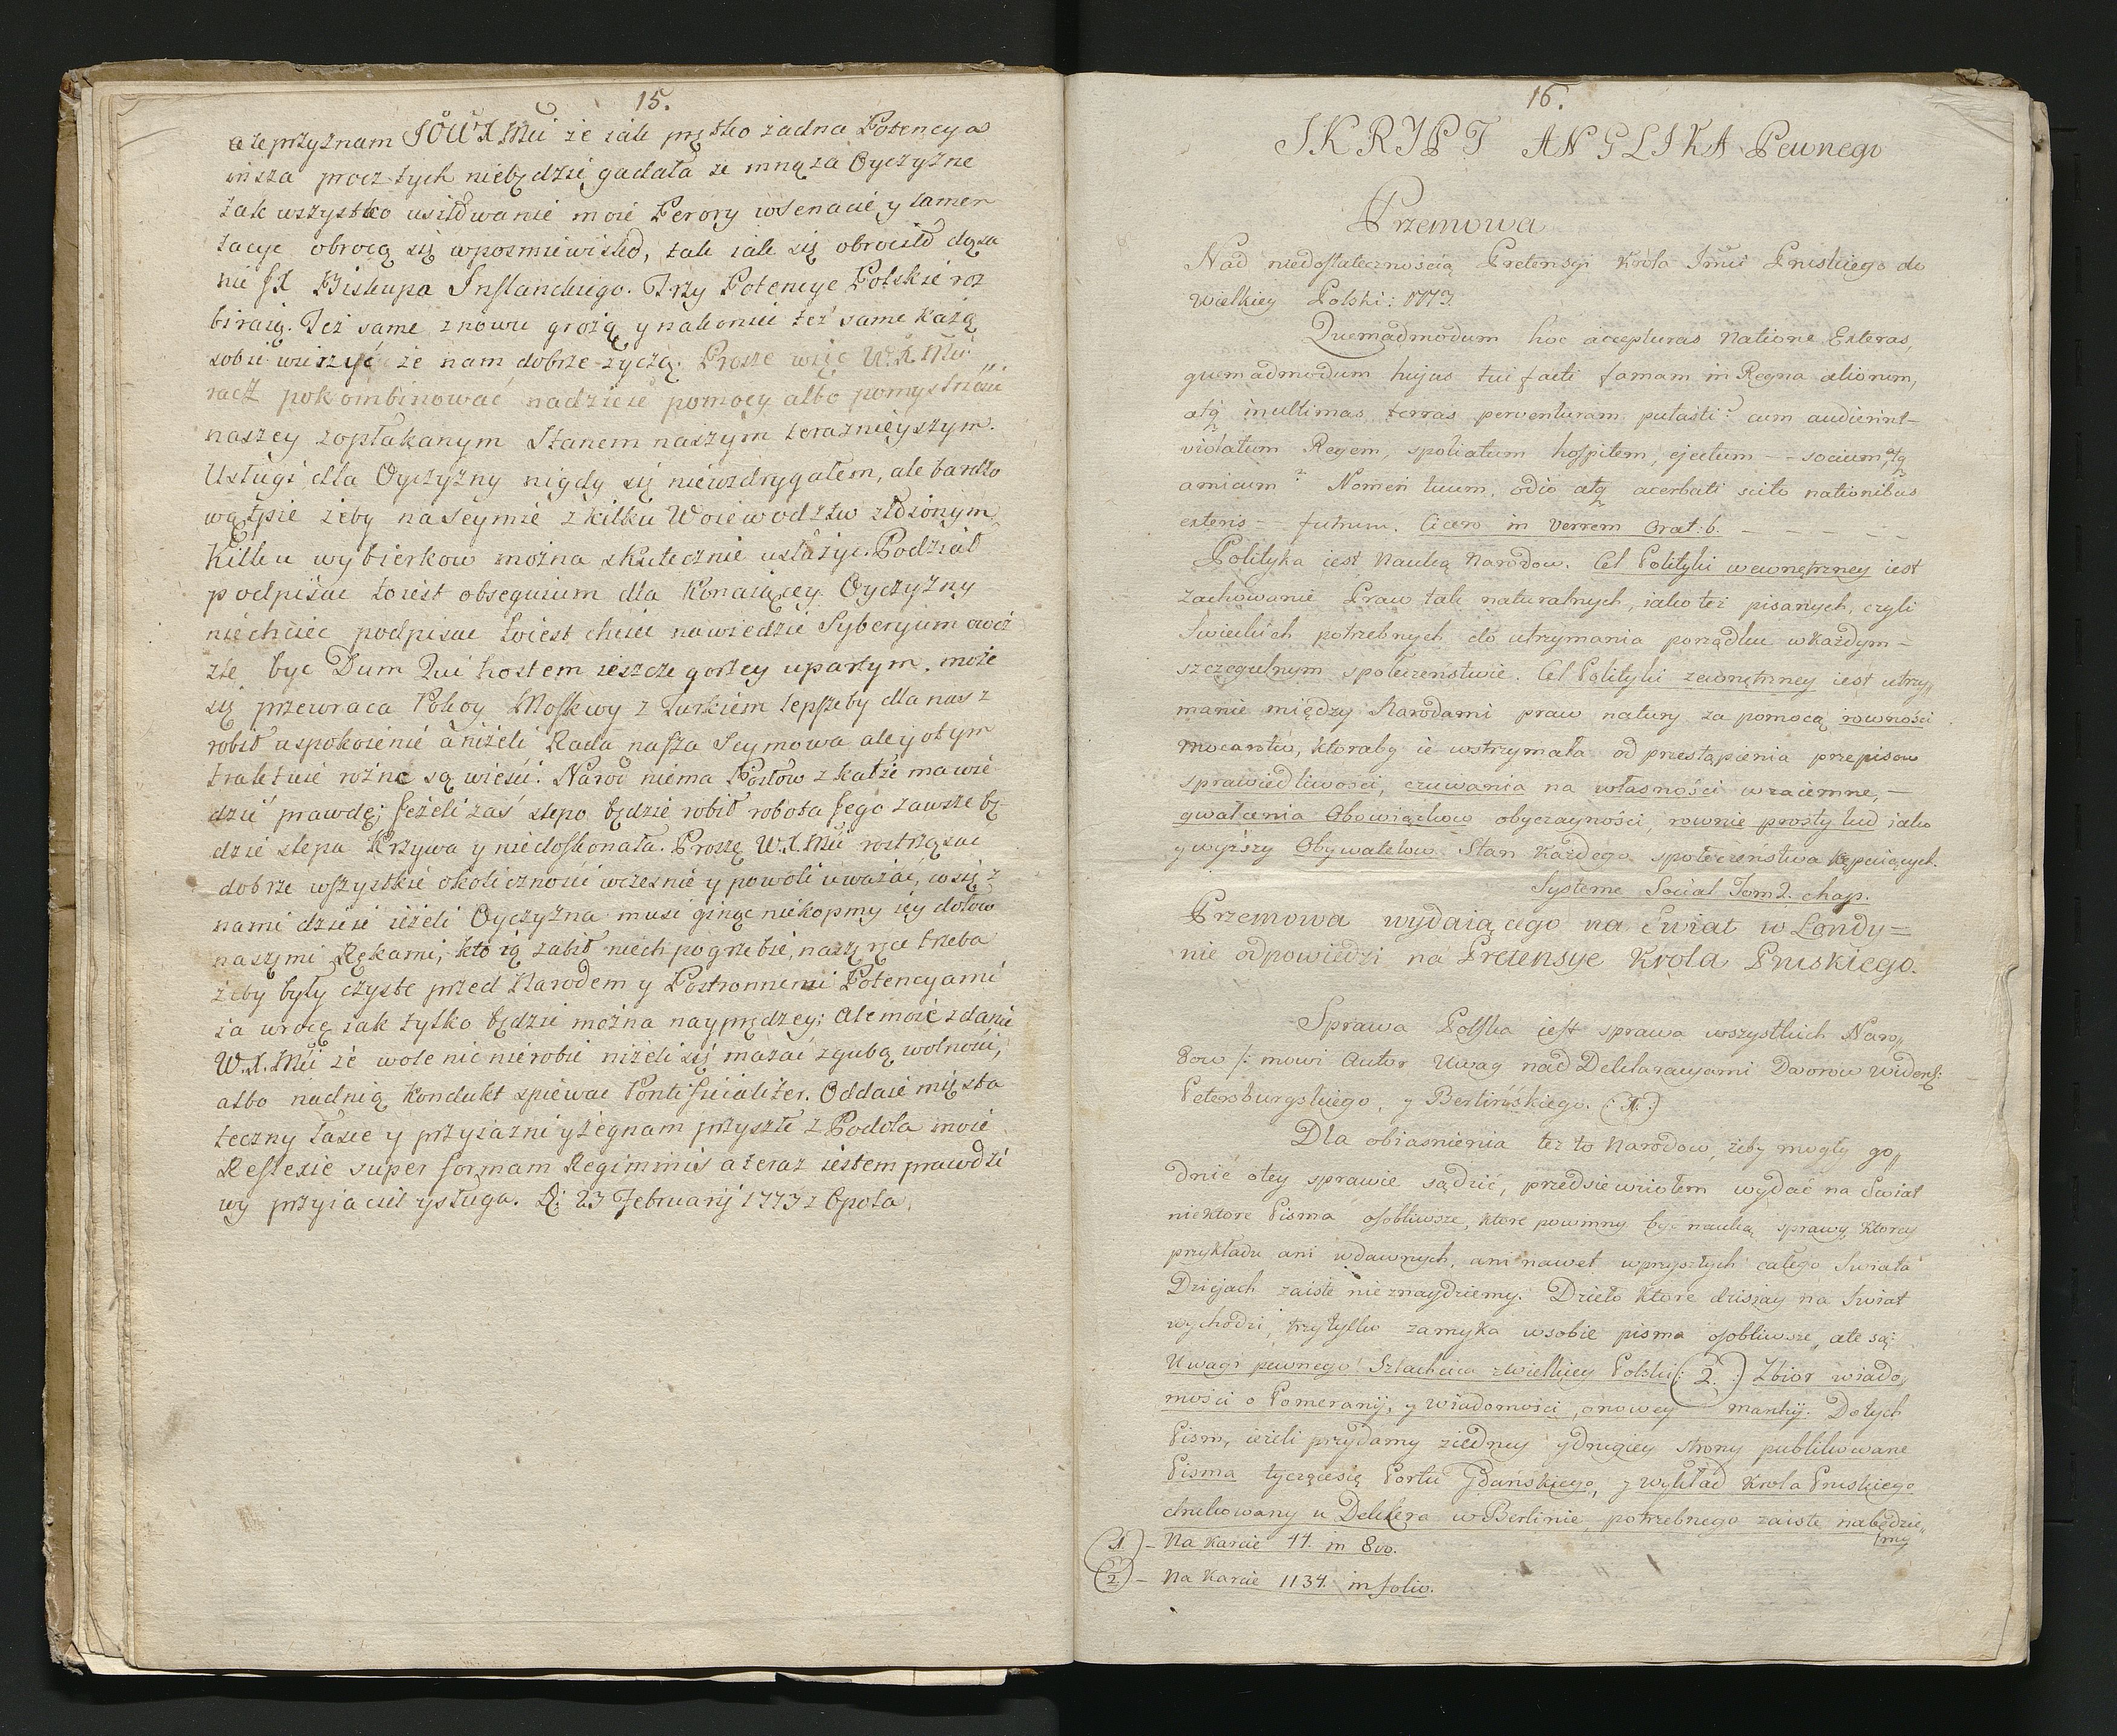 15.
ale przyznam JOWXMci że iak prętko żadna Potencya
insza procz tych niebędzie gadała ze mną za Oyczyznę
tak wszystko usiłowanie moie Perory w Senacie y lamen
tacye obrocą się w posmiewisko, tak iak się obrociło dąsa
nie JX Biskupa Inflanckiego. Trzy Potencye Polskie roz
biraią. Też same znowu grożą y nakoniec też same każą
sobie wierzyć że nam dobrze życzą. Proszę więc W.X.Mci
racz pokombinować nadzieie pomocy albo pomyslności
naszey z opłakanym Stanem naszym teraznieyszym.
Usługi dla Oyczyzny nigdy się niewzdrygałem, ale bardzo
wątpie żeby na Seymie z kilku Woiewodztw złożonym
Kilku wybierkow można skutecznie usłużyc. Podział
podpisac to iest obsequium dla Konaiącey Oyczyzny
niechciec podpisac to iest chciec nawiedzic Syberyium owoż
zle byc Dum Qui hostem ieszcze gorzey upartym. może
się przewraca Pokoy Moskwy z Turkiem lepszeby dla nas z
robił uspokoienie aniżeli Rada nasza Seymowa ale y o tym
traktacie rożne są wiesci. Narod niema Posłow zkatże ma wie
dzieć prawdę; Jeżeli zaś slepo będzie robił robota Jego zawsze bę
dzie slepa Krzywa y niedoskonała. Proszę W.X.Mci roztrząsac
dobrze wszystkie okoliczności wczesnie y powoli uważać, co się z
nami dzieie ieżeli Oyczyzna musi ginąc niekopmy iey dołow
naszymi Rękami, kto ią zabił niech pogrzebie, naszę ręce trzeba
żeby były czyste przed Narodem y Postronnemi Potencyami
ia wrocę iak tylko będzie można nayprędzey; Ale moie zdanie
W.X.Mci że wole nic nierobic niżeli się mazać zgubą wolności,
albo nad nią Kondukt spiewac Pontificialiter. Oddaie mię sta
teczny łasce y przyiazni y żegnam przyszle z Podola moie
Reflexie super formam Regiminis a teraz iestem prawdzi
wy przyiaciel y sługa. D: 23 Februarij 1773 z Opola.
16.
SKRYPT ANGLIKA Pewnego
Przemowa
Nad niedostatecznością Pretensyi Krola Jmci Pruskiego do
Wielkiey Polski: 1773.
Quemadmodum hoc accepturas Natione Exteras,
quemadmodum hujus tui facti famam in Regna aliorum,
atq in ultimas terras perventuram putasti? cum audierint
violatum Regem, spoliatum hospitem, ejectum - - socium, atq
amicum? Nomen tuum, odio atq acerbati scito nationibus
exteris - - futrum. Cicero in Verrem Orat: 6. - - - - -
Polityka iest Nauką Narodow. Cel Polityki wewnętrzney iest
zachowanie Praw tak naturalnych, iako też pisanych, czyli
Swieckich potrzebnych do utrzymania porządku w każdym -
szczegulnym społeczeństwie. Cel Polityki zewnętrzney iest utrzy„
manie między Narodami praw natury za pomocą rowności
mocarstw, ktoraby ie wstrzymała od przestąpienia przepisow
sprawiedliwości, czuwania na własności wzaiemne, -
gwałcenia Obowiązkow obyczayności, rownie prosty lud iako
y wyższy Obywatelow Stan Każdego społeczeństwa Kępuiących.
Systeme Social Tom 2. chap.
Przemowa wydaiącego na Swiat w Londy=
nie odpowiedzi na Pretensye Krola Pruskiego.
Sprawa Polska iest sprawa wszystkich Naro„
dow /: mowi Autor Uwag nad Deklaracyami Dworow Widensk:
Petersburgskiego, y Berlińskiego. (:1.:)
Dla obiasnienia też to Narodow, żeby mogły go„
dnić o tey sprawie sądzić, przedsiewziołem wydać na Swiat
niektore Pisma osobliwsze, ktore powinny być nauką sprawy, ktorey
przykładu ani w dawnych, ani nawet w przyszłych całego Swiata
Dziejach zaiste nie znaydziemy. Dzieło ktore dzisiay na Swiat
wychodzi, trzy tylko zamyka w sobie pisma osobliwsze, ale są:
Uwagi pewnego Szlachcica z wielkiey Polski (: 2. :) Zbior wiado„
mości o Pomeranij, y wiadomości, o nowey markij. Do tych
Pism, ieżeli przydamy z iedney y drugiey strony publikowane
Pisma tyczącesię Portu Gdańskiego, y wykład Krola Pruskiego
drukowany u Dekkera w Berlinie, potrzebnego zaiste nabędzie„
my
(1.) - Na karcie 11. in 8vo.
(2.) - Na karcie 1134. in folio.